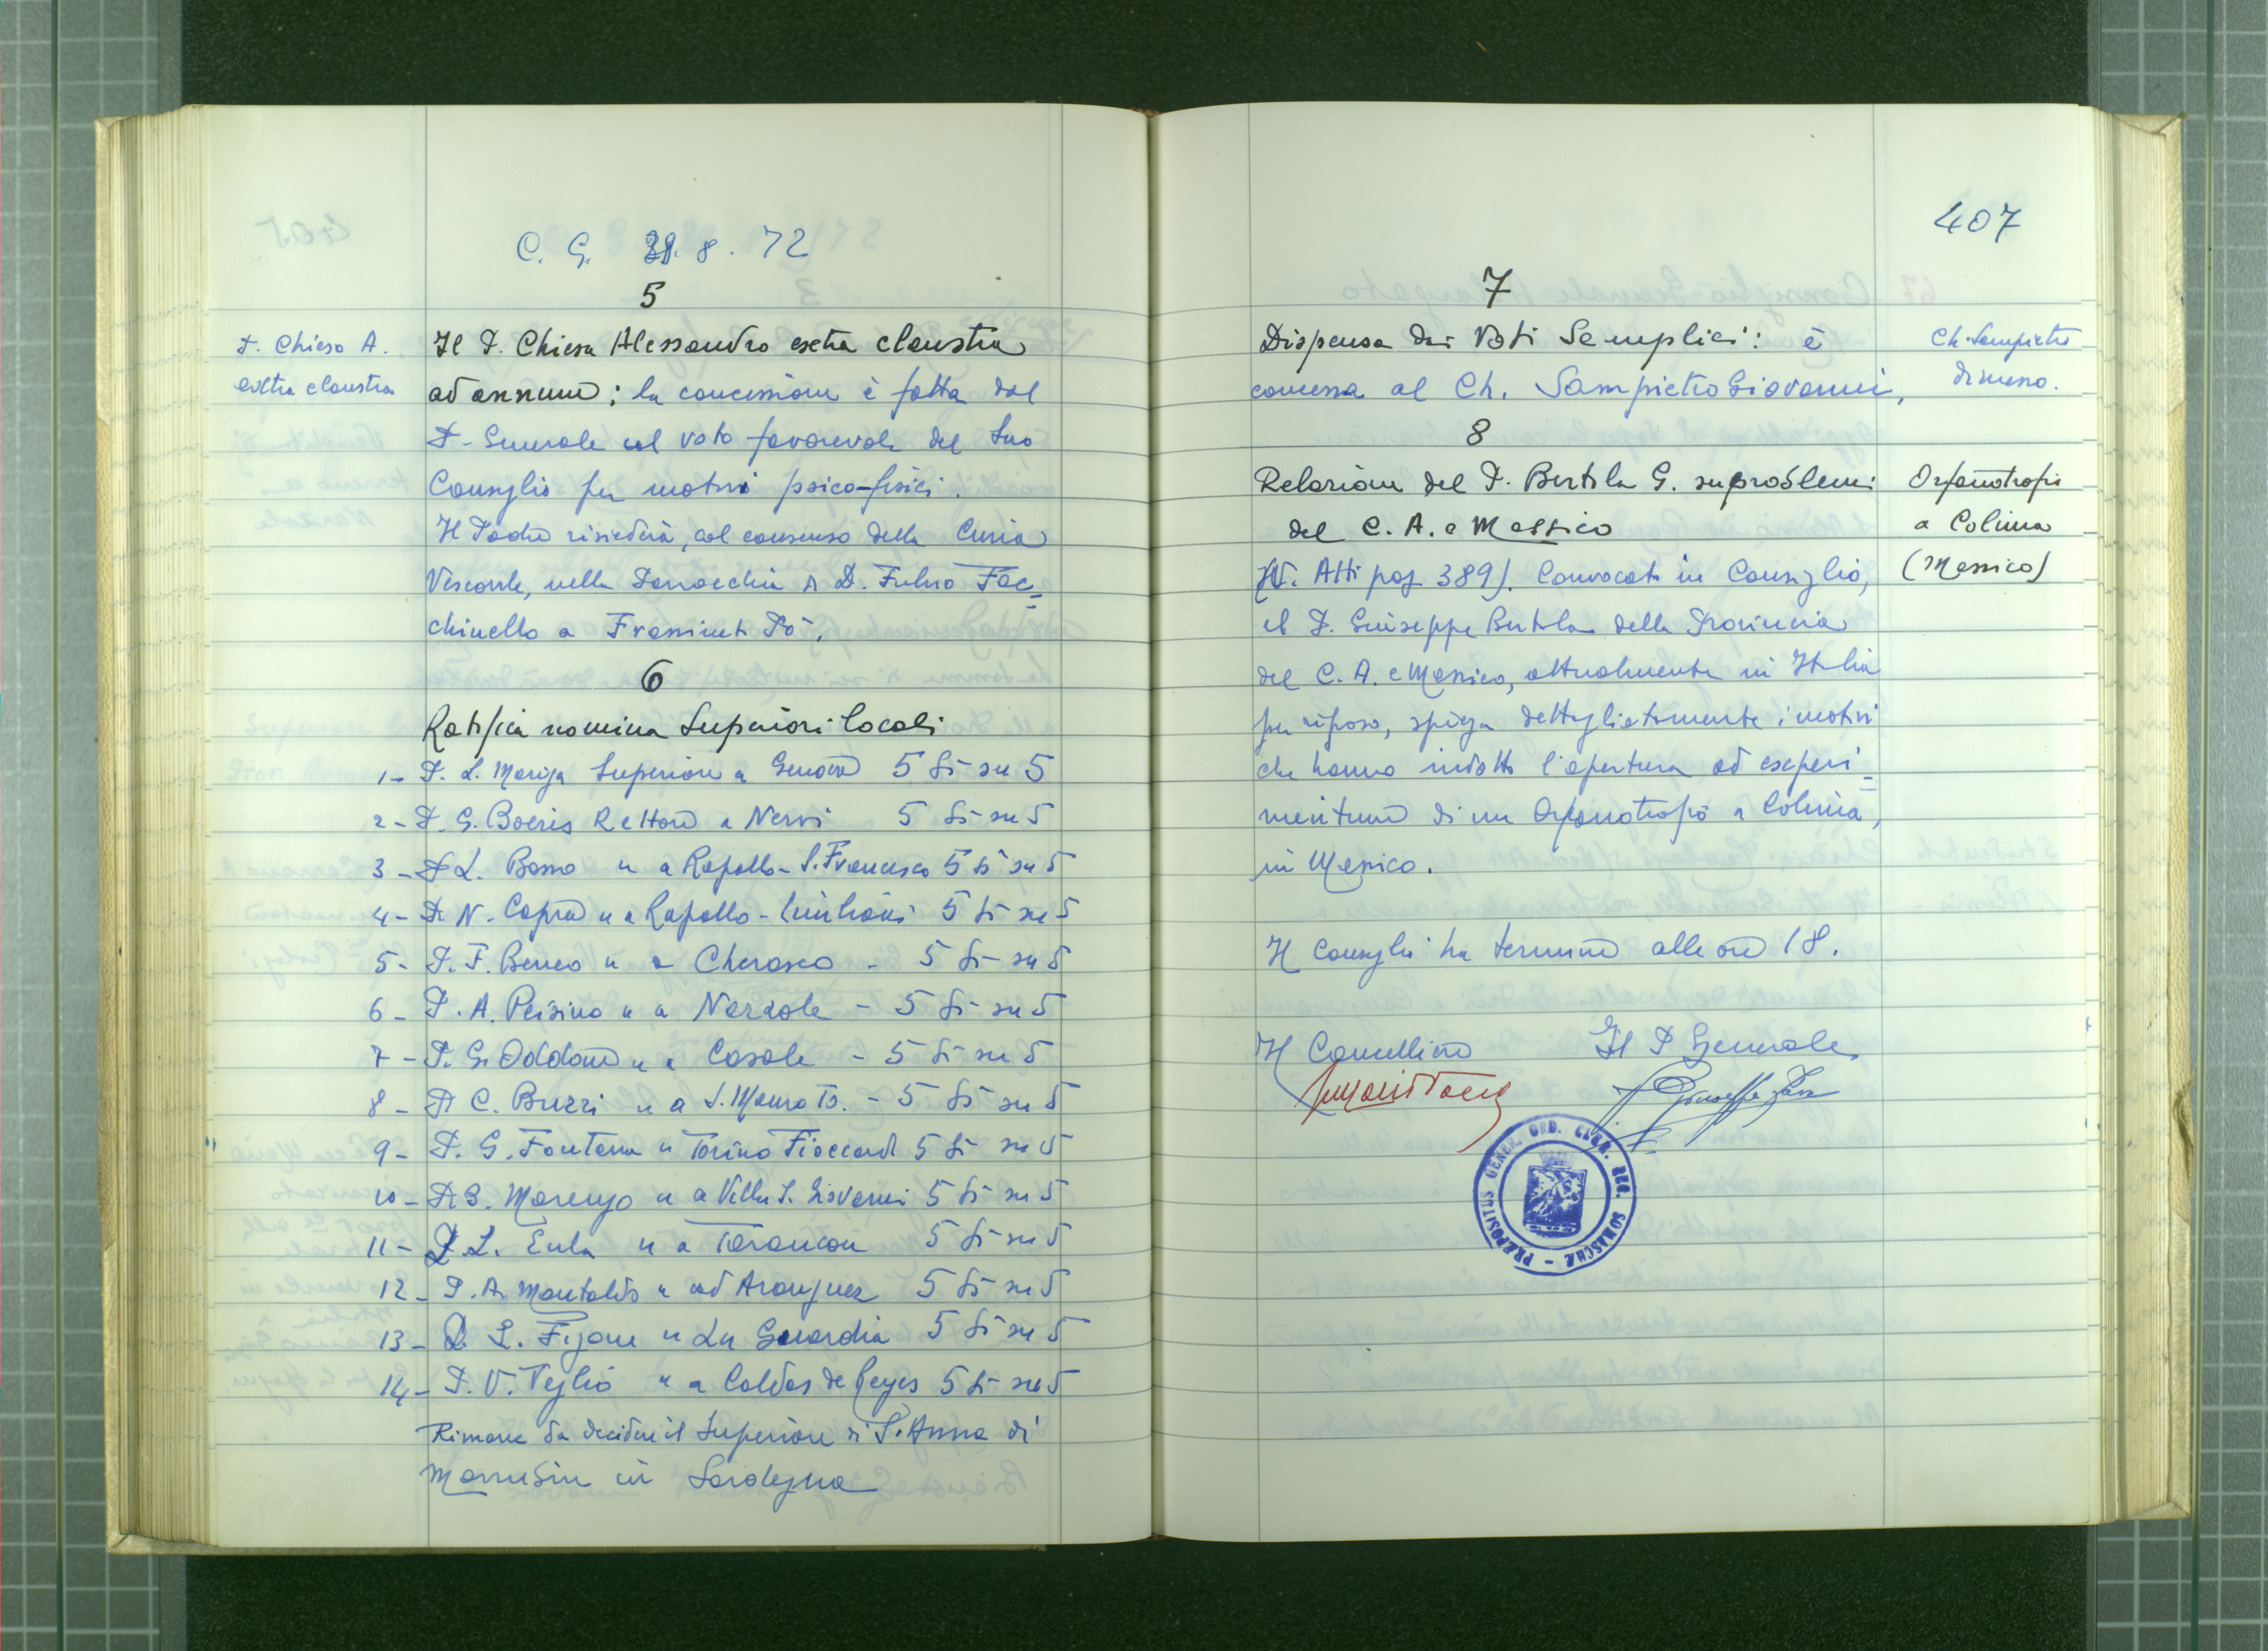 C. G. 31. 8. 72
5
P. Chiesa A.
extra claustra
Il P. Chiesa Alessandro extra claustra
ad annum; la concessione è fatta dal
P. Generale col voto favorevole del suo
Consiglio per motivi psico-fisici.
Il Padre risiederà, col consenso della Curia
Vescovile, nella Parrocchia di D. Fulvio Fac=
chinello a Frassineto Po.
6
Ratifica nomina Superiori locali
1- P. L. Mariga Superiore a Genova 5 Sì su 5
2- P. G. Boeris Rettore a Nervi 5 Sì su 5
3- P. L. Basso " a Rapallo - S. Francesco 5 Sì su 5
4- P. N. Capra " a Rapallo - Emiliani 5 Sì su 5
5- P. F. Beneo " a Cherasco - 5 Sì su 5
6- P. A. Peisino " a Narzole - 5 Sì su 5
7- P. G. Oddone " a Casale - 5 Sì su 5
8- P. C. Buzzi " a S. Mauro To. - 5 Sì su 5
9- P. G. Fontana " Torino Fioccardo 5 Sì su 5
10- P. G. Marengo " a Villa S. Giovanni 5 Sì su 5
11- P. L. Eula " a Tarancon 5 Sì su 5
12- P. A. Montaldo " ad Aranjuez 5 Sì su 5
13- P. L. Figone " La Guardia 5 Sì su 5
14- P. V. Veglio " a Caldas de Reyes 5 Sì su 5
Rimane da decidere il Superiore di S. Anna di
Marrubiu in Sardegna
407
7
Dispensa dai Voti Semplici: è
concessa al Ch. Sampietro Giovanni,
Ch. Sampietro
dimesso.
8
Relazione del P. Bertola G. su problemi
del C. A. e Messico
(V. Atti pag 389). Convocato in Consiglio,
il P. Giuseppe Bertola della Provincia
del C. A. e Messico, attualmente in Italia
per riposo, spiega dettagliatamente i motivi
che hanno indotto l'apertura ad experi=
mentum di un Orfanotrofio a Colima,
in Messico.
Orfanotrofio
a Colima
(Messico)
Il Consiglio ha termine alle ore 18.
Il Cancelliere Il P Generale
PRÆPOSITUS GENER. ORD. CLER. REG. SOMASCHÆ